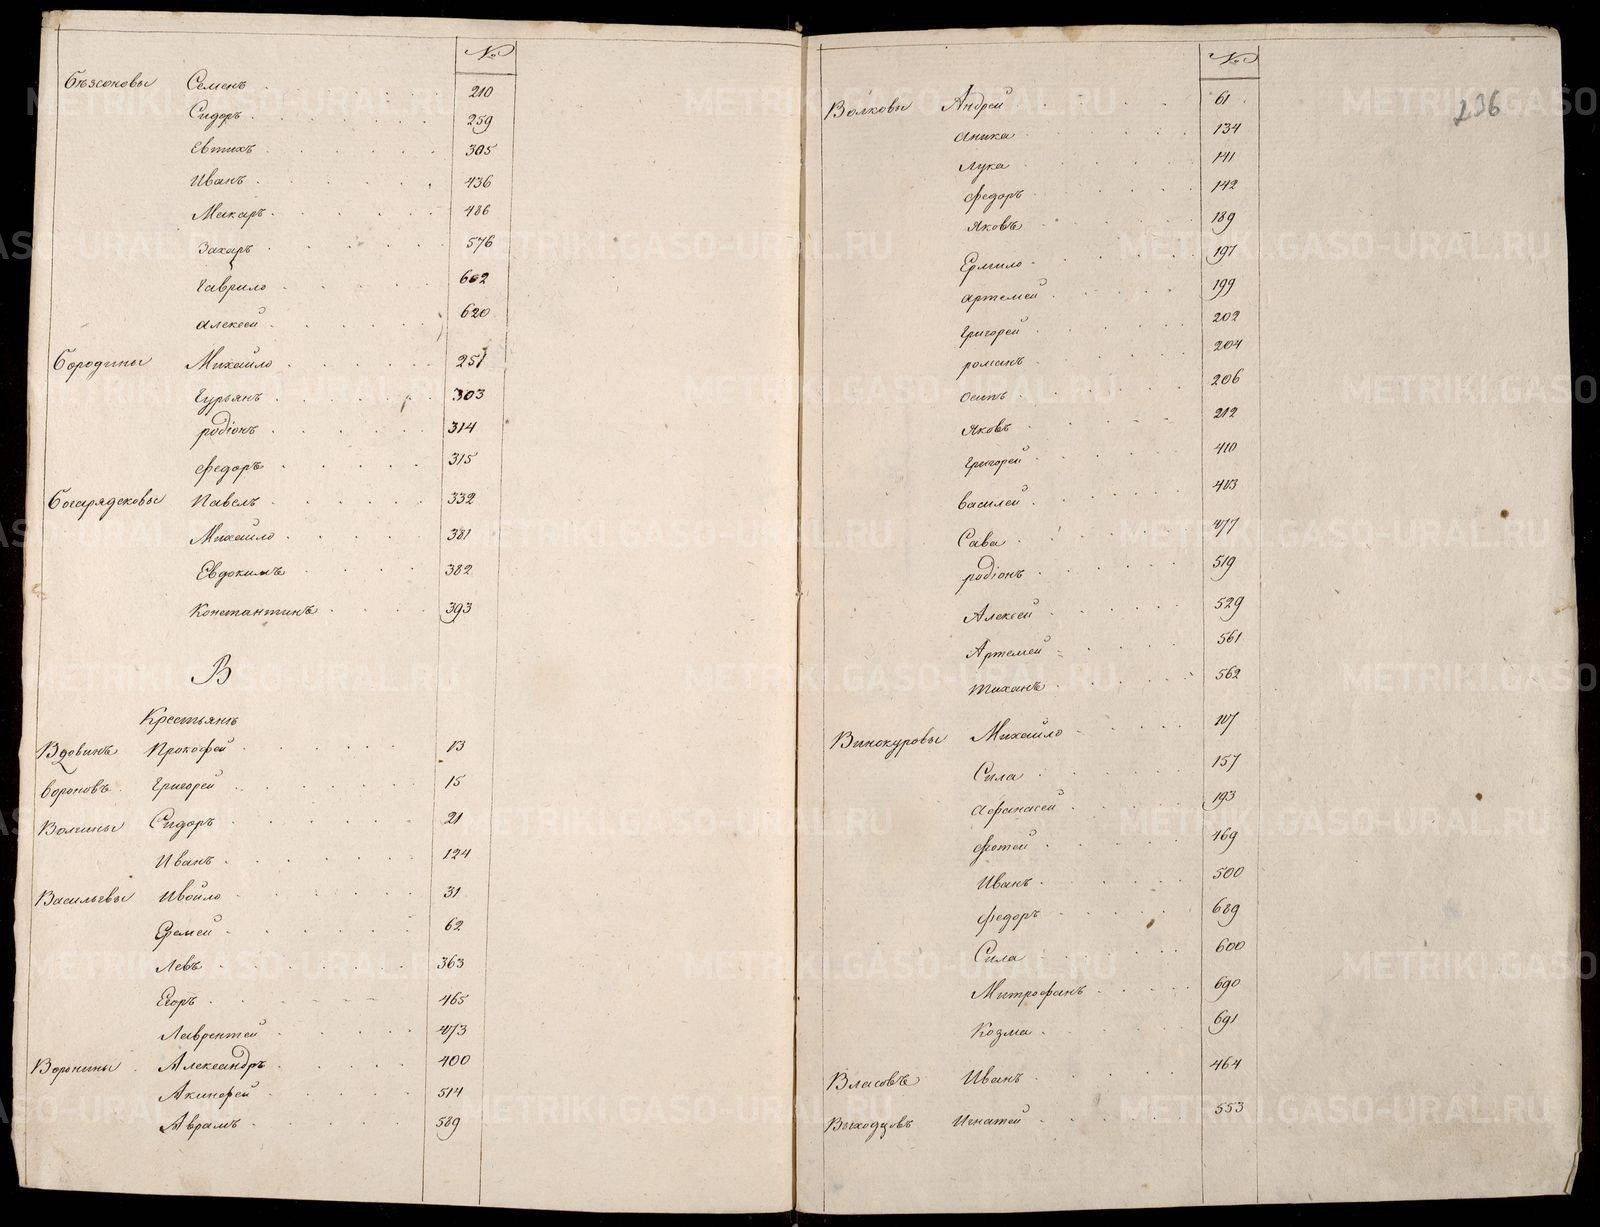 №
Бѣзсоновы Семенъ 210
Сидоръ 259
Евтихъ 305
Иванъ 436
Макаръ 486
Захаръ 576
Гаврило 602
Алексей 620
Бородины Михайло 251
Гурьянъ 303
родіонъ 314
федоръ 315
Павелъ 332
Михайло 381
Евдокимъ 382
Константинъ 393
В
Крестьянъ
Вдовинъ Прокофей 13
вороновъ Григорей 15
Волгины Сидоръ 21
Иванъ 124
Васильевы Ивойло 31
Еремей 62
Левъ 363
Егоръ 465
Лаврентей 473
Воронины Александръ 400
Акинфей 514
Аврамъ 589
№
236
Волковы Андрей 61
аника 134
Лука 141
федоръ 142
Яковъ 189
Ермило 197
артемей 199
Григорей 202
романъ 204
осипъ 206
Яковъ 212
Григорей 410
василей 413
Сава 477
родіонъ 519
Алексей 529
Артемей 561
тиханъ 562
Винокуровы Михайло 107
Сила 157
афанасей 193
фотей 469
Иванъ 500
федоръ 689
Сила 600
Митрофанъ 690
Козма 691
Власовъ Иванъ 464
Выходцовъ Игнатей 553
METRIKI.GASO-URAL.RU